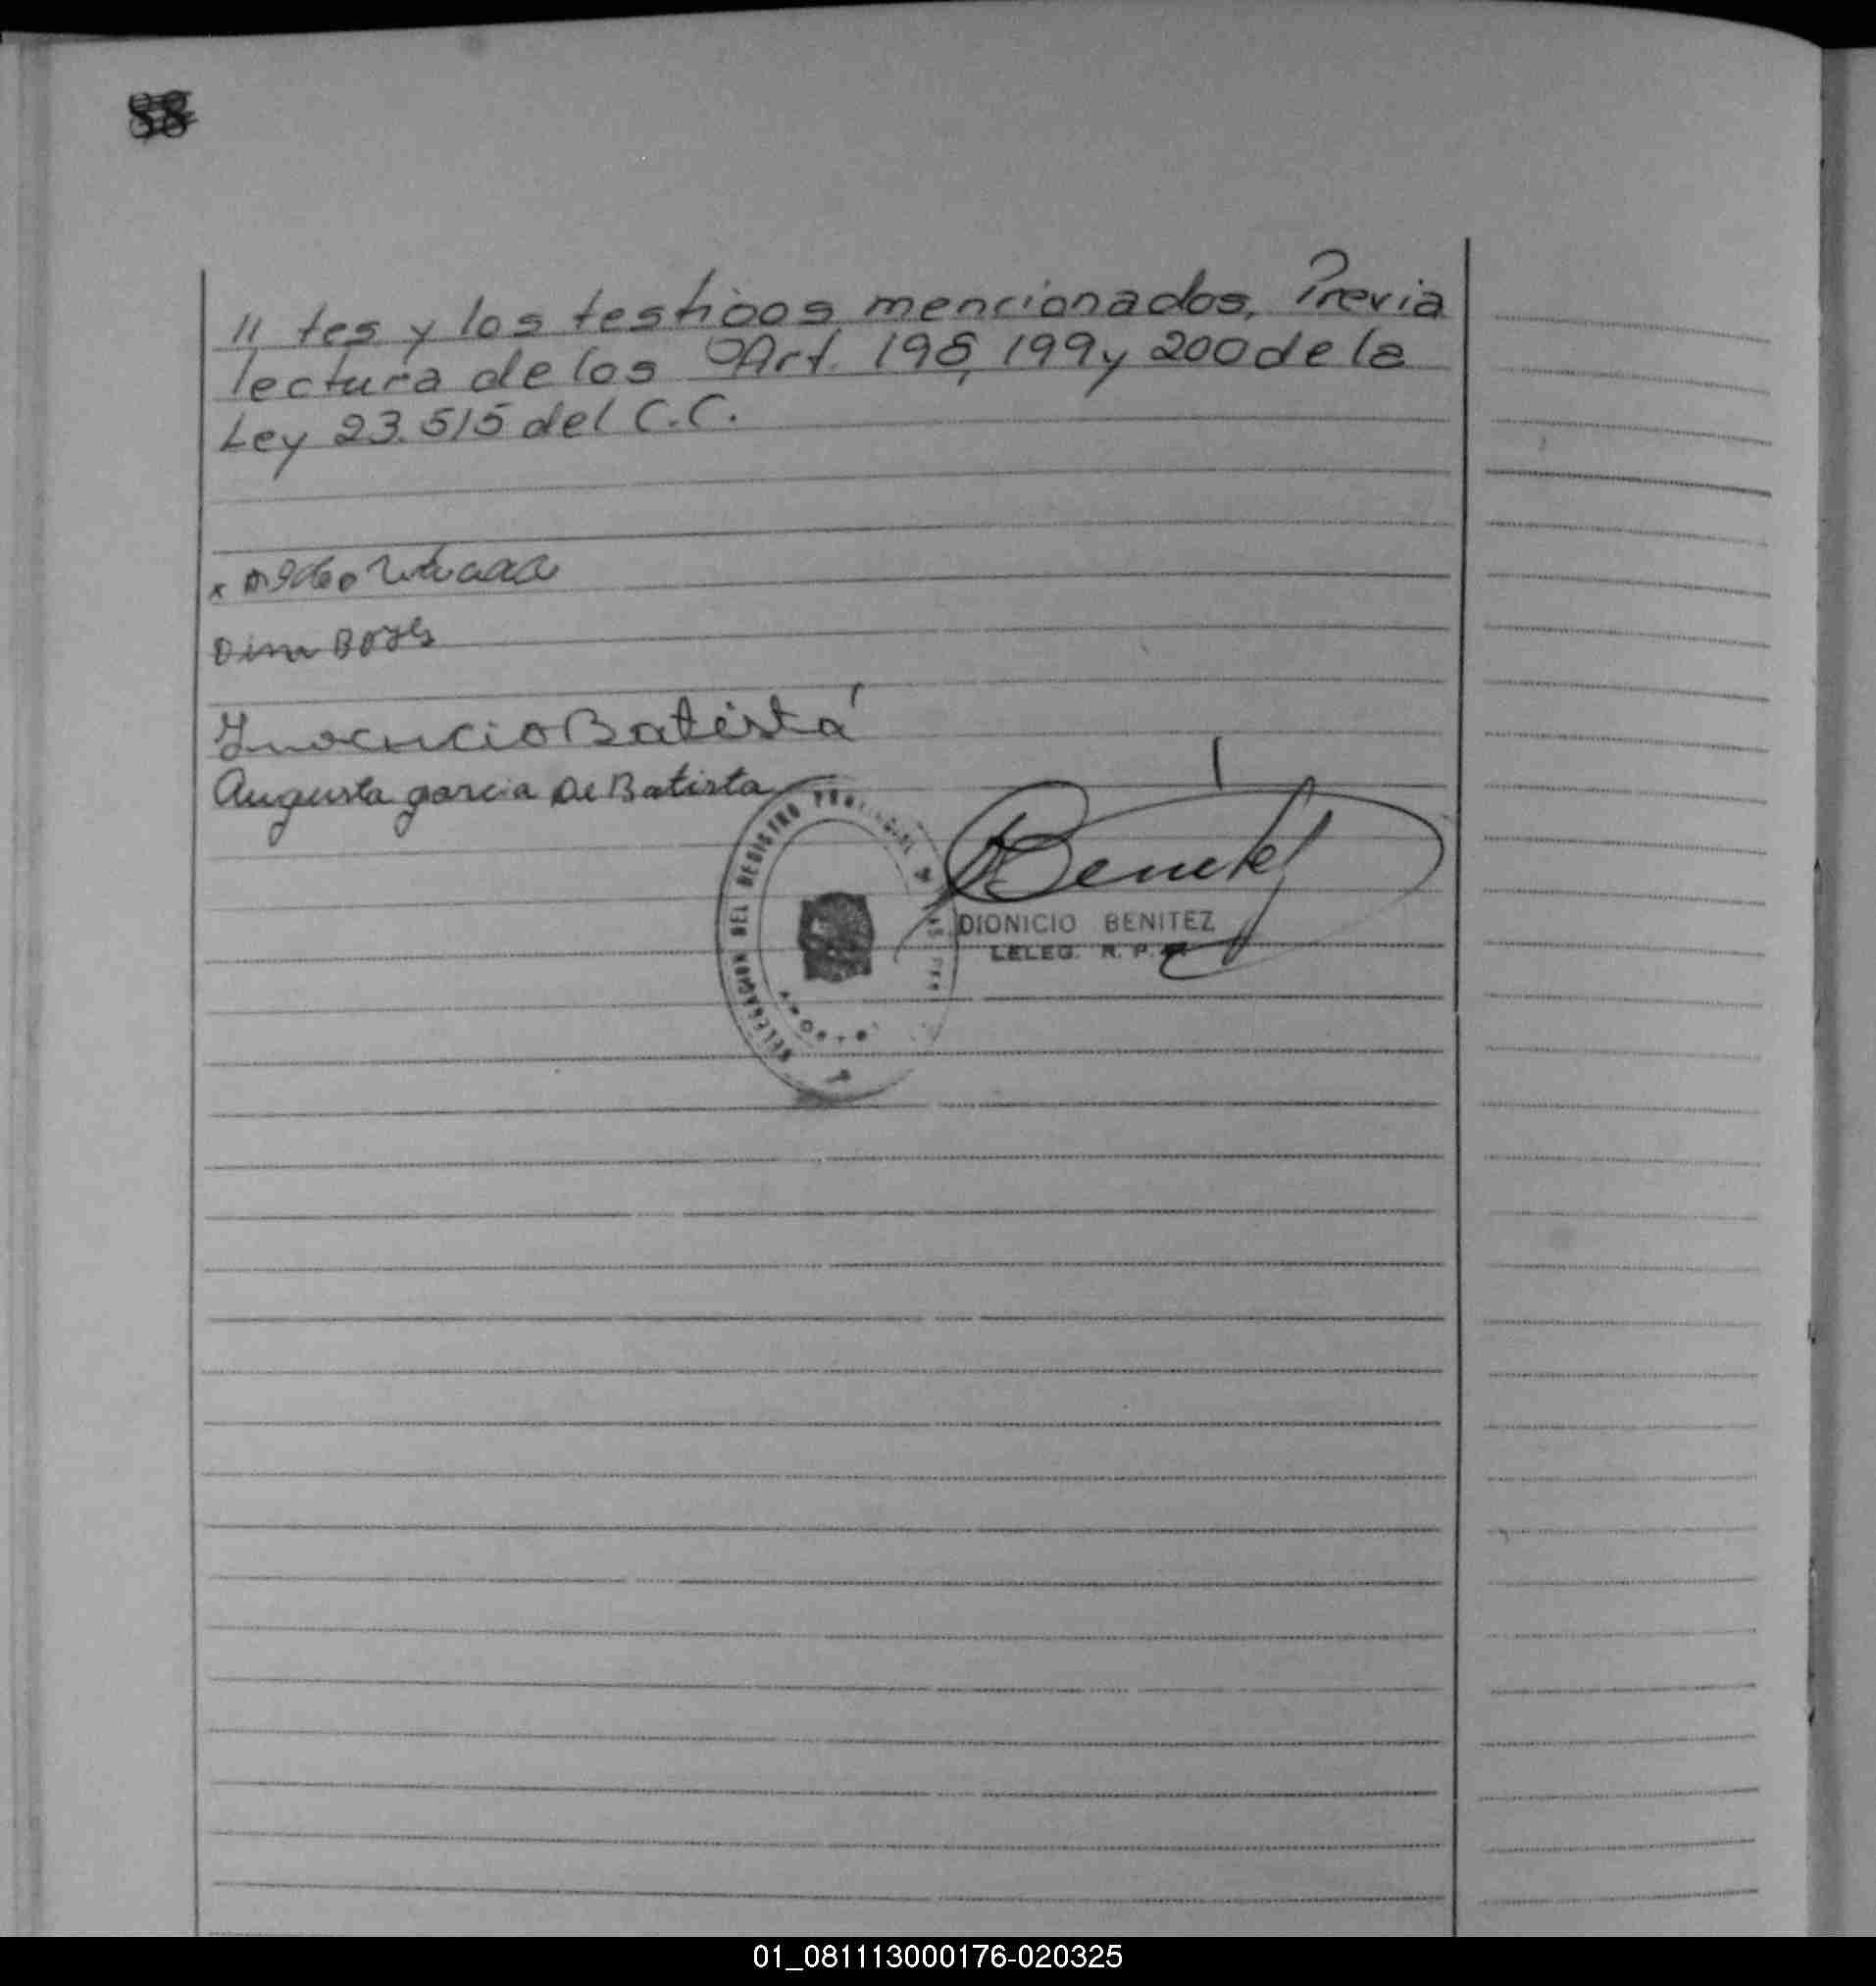 88
11 tes y los testigos mencionados, Previa
lectura de los Art. 198, 199 y 200 de la
Ley 23.515 del C.C.
x
Inocencio Batista
Augusta garcia De Batista
DELEGACION DEL REGISTRO PROVINCIAL
Benitez
DIONICIO BENITEZ
LELEG. R. P.
01_081113000176-020325